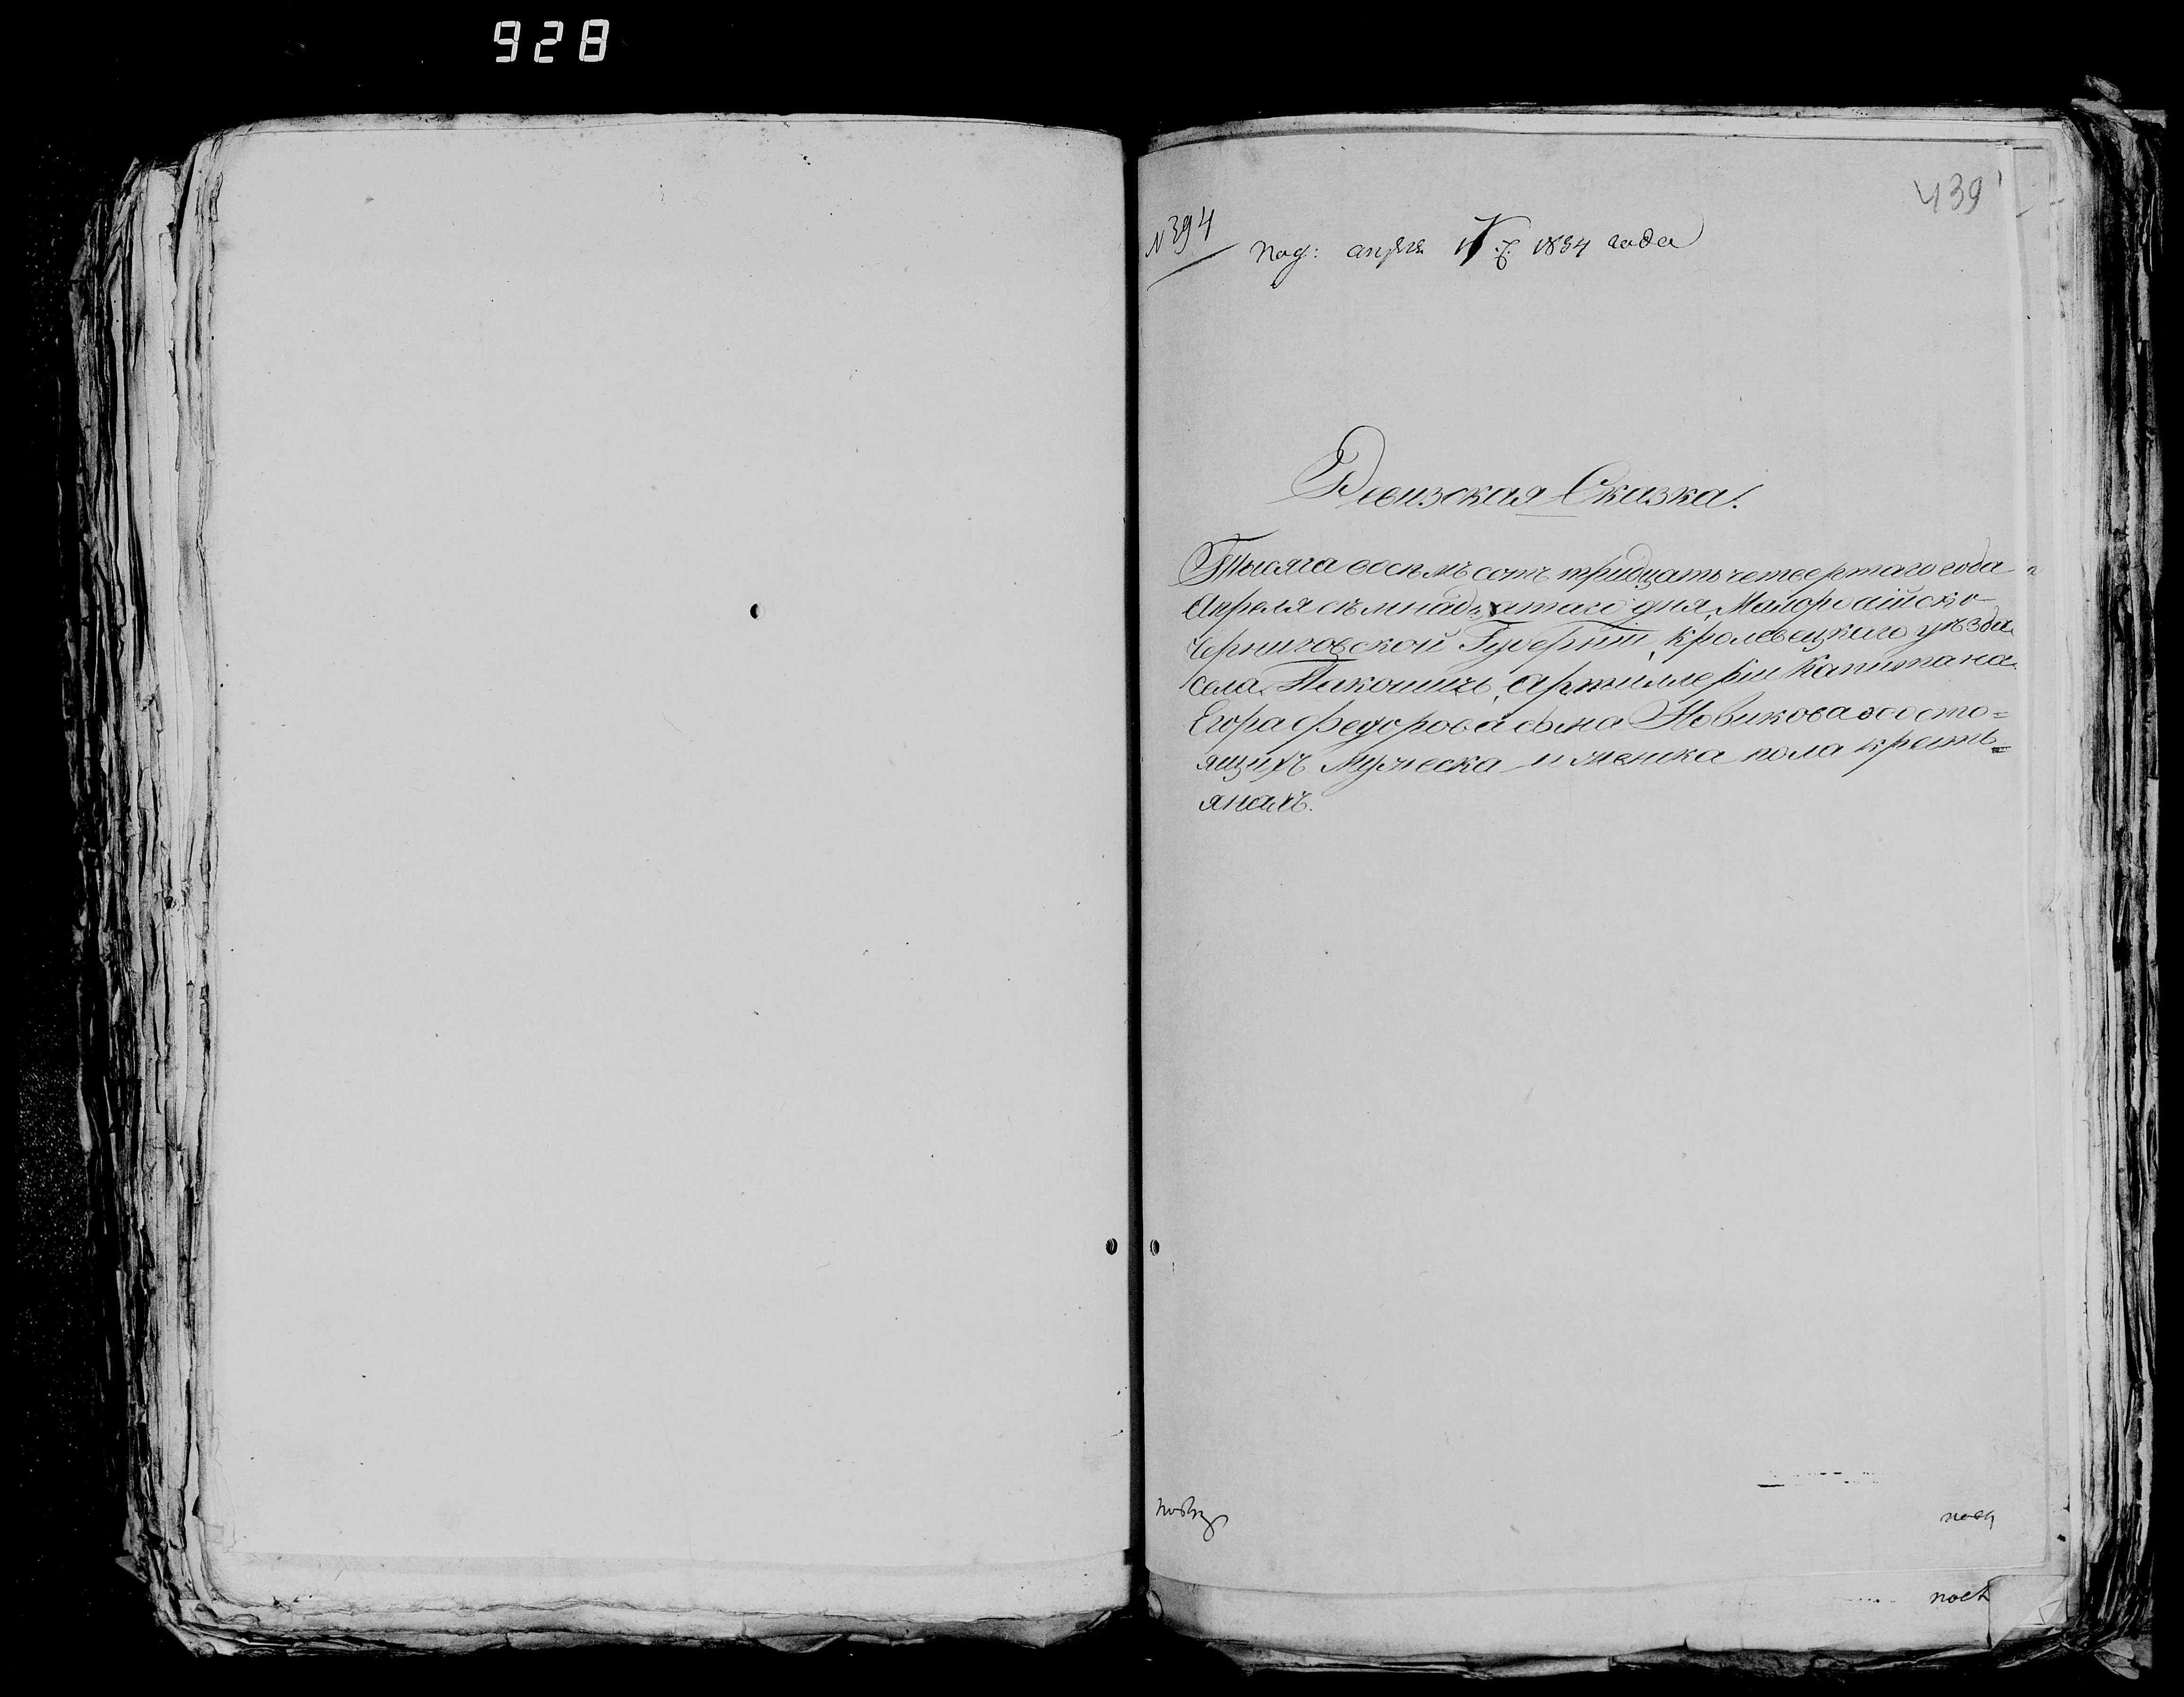 928
439
№ 394
под: апреля 17 ч. 1834 года
Ревизская Сказка.
Тысяча восемь сотъ тридцать четвертаго года
Апреля съмнадцатаго дня,
Черниговской Губерніи, Кролевецкаго уѣзда
села, Артиллеріи Капитана
Егора Федорова сына Новикова о состо=
ящихъ мужеска и женска пола кресть=
янахъ.